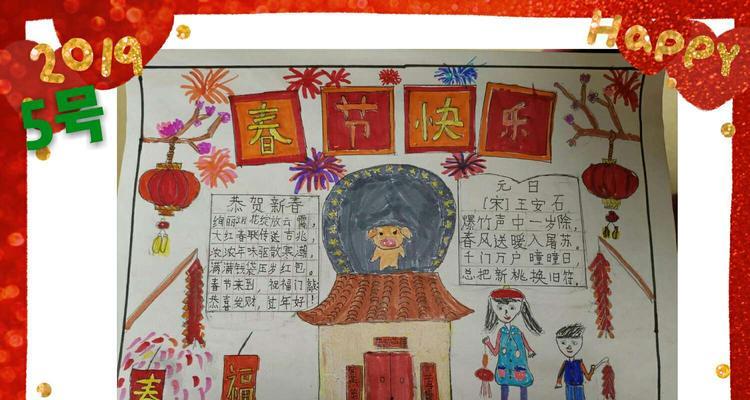 2019
Happy
5号
春节快乐
恭贺新春
绚丽烟花绽放云霄，
大红春联传送吉兆，
浓浓年味驱散寒潮，
满满钱袋压岁红包。
春节来到，祝福门敲
恭喜发财，过年好！
元日
［宋］王安石
爆竹声中一岁除，
春风送暖入屠苏。
千门万户曈曈日，
总把新桃换旧符。
春
福